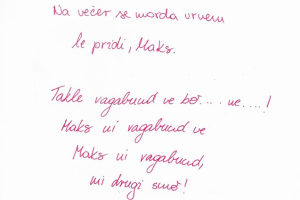 Na večer se morda vrnem
le pridi, Maks.
Takle vagabund ve bež.... ne....!
Maks ni vagabund ve
Maks ni vagabund,
mi drugi smo!